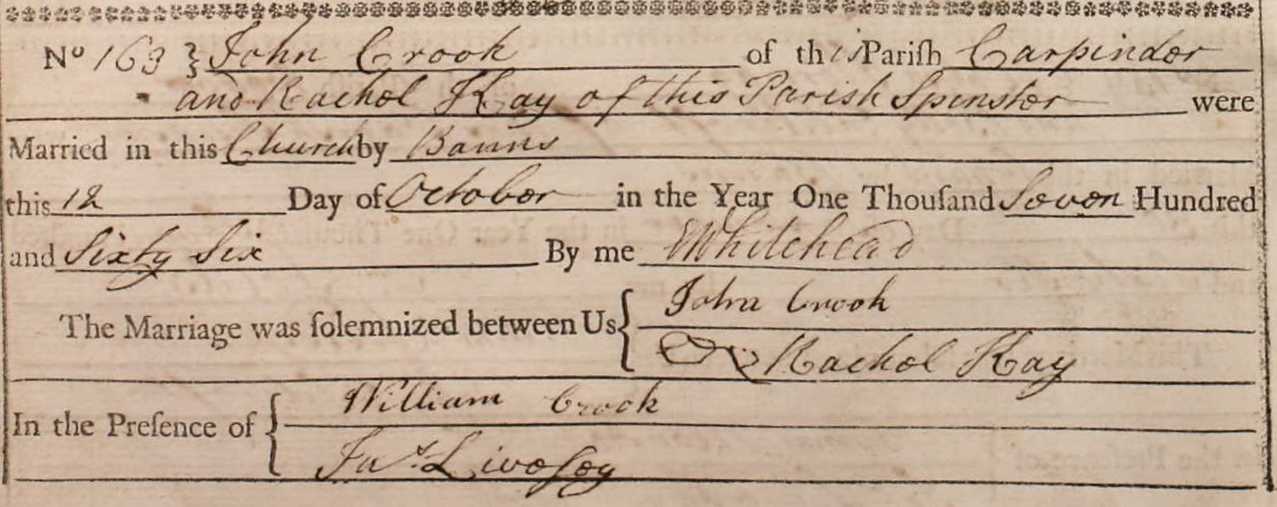 No 163 } John Crook of this Pariſh Carpindor
and Rachel Kay of this Parish Spinster were
Married in this Church by Banns
this 12 Day of October in the Year One Thouſand Seven Hundred
and Sixty Six By me Whitehead
The Marriage was ſolemnized between Us { John Crook
Rachel Kay
In the Preſence of { William Crook
Jas. Liveſey